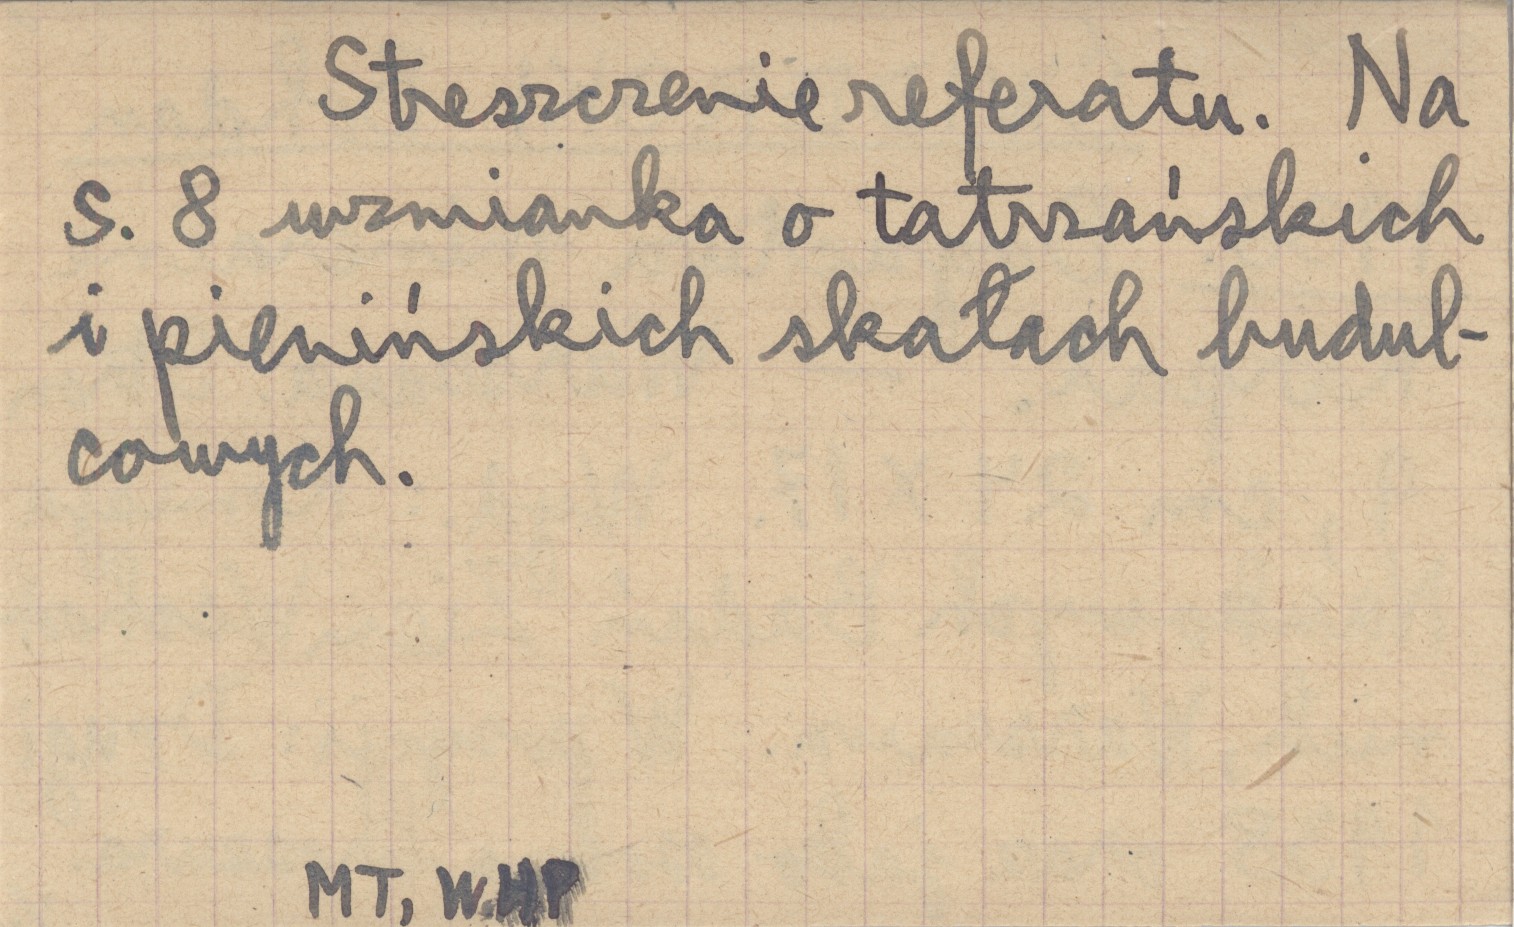 Streszczenie referatu. Na
s. 8 wzmianka o tatrzańskich
i pienińskich skałach budul-
cowych.
MT, WHP